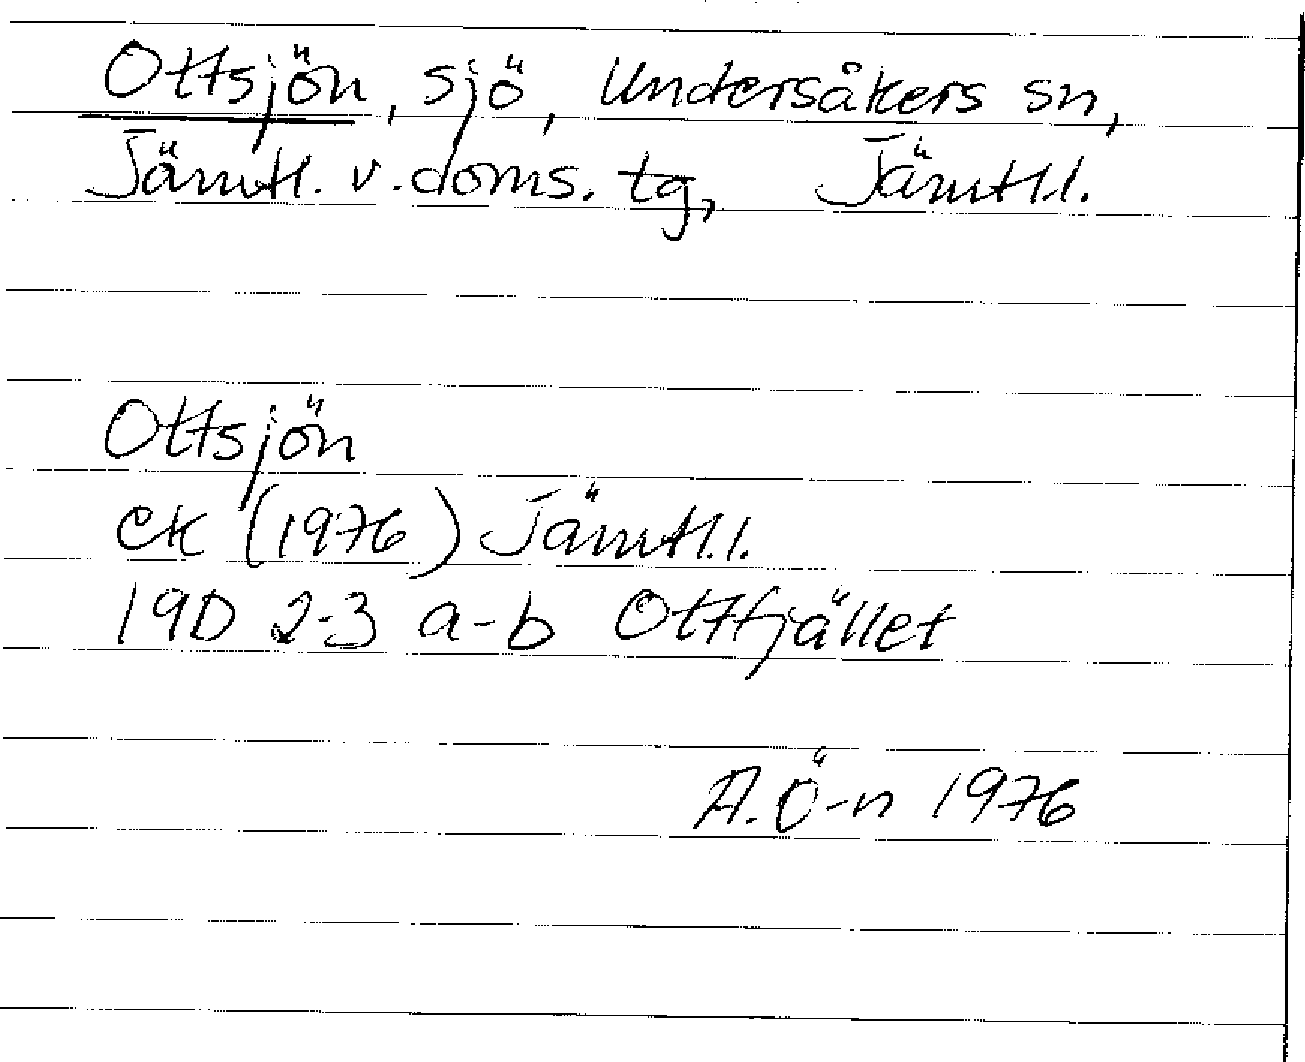 Ottsjön, sjö, Undersåkers sn,
Jämtl. v. doms. tg, Jämtl.l.
Ottsjön
ek (1976) Jämtl.l.
19D 2-3 a-b Ottfjället
A. Ö-n 1976